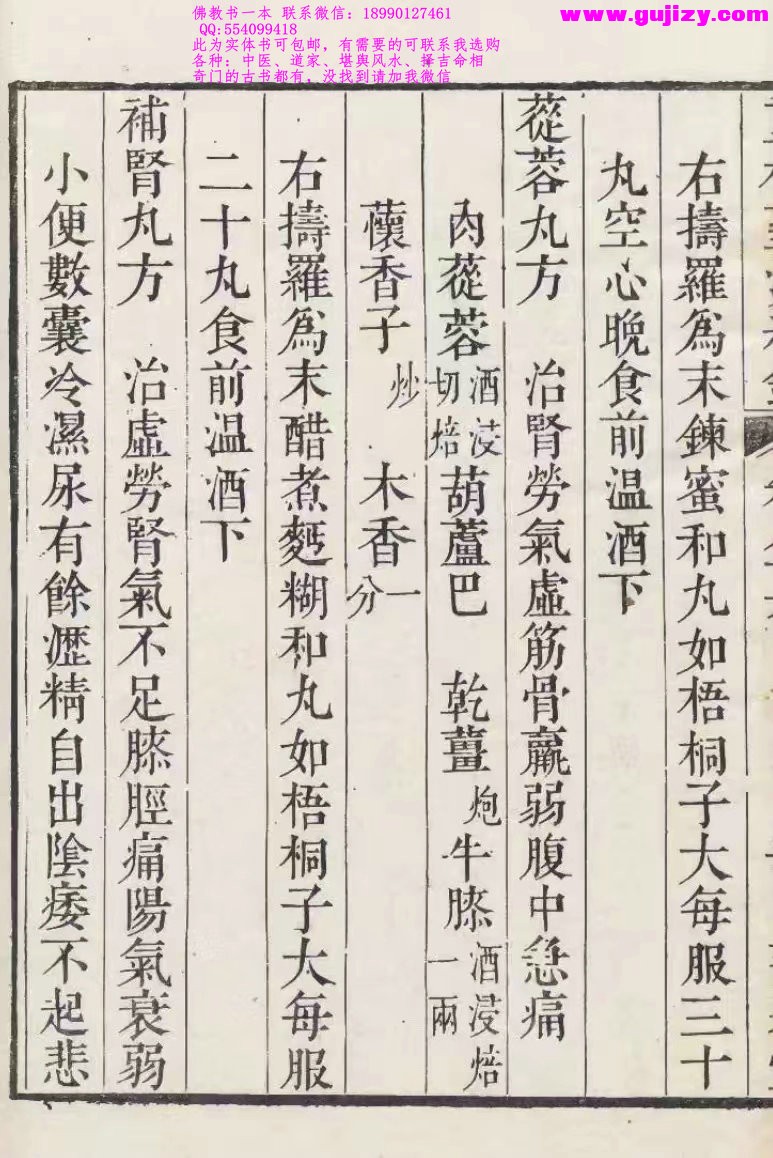 佛教书一本 联系微信：18990127461
QQ:554099418
此为实体书可包邮，有需要的可联系我选购
各种：中医、道家、堪舆风水、择吉命相
奇门的古书都有，没找到请加我微信
www.gujizy.com
右擣羅爲末鍊蜜和丸如梧桐子大每服三十
丸空心晚食前温酒下
蓯蓉丸方　治腎勞氣虛筋骨羸弱腹中急痛
肉蓯蓉酒浸切焙　葫蘆巴　乾薑炮　牛膝酒浸焙一兩
蘹香子炒　木香一分
右擣羅爲末醋煮麪糊和丸如梧桐子大每服
二十丸食前温酒下
補腎丸方　治虛勞腎氣不足膝脛痛陽氣衰弱
小便數囊冷濕尿有餘瀝精自出陰痿不起悲